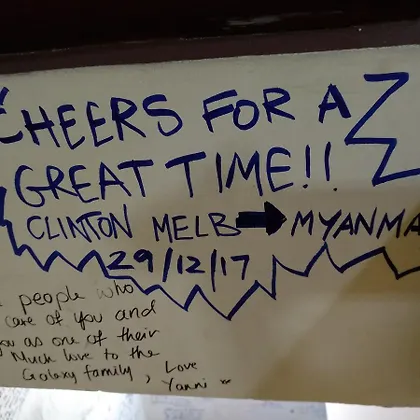 CHEERS FOR A
GREAT TIME!!
CLINTON MELB → MYANMA
29/12/17
people who
care of you and
you as one of their
Much love to the
Galaxy family, Love
Yanni x